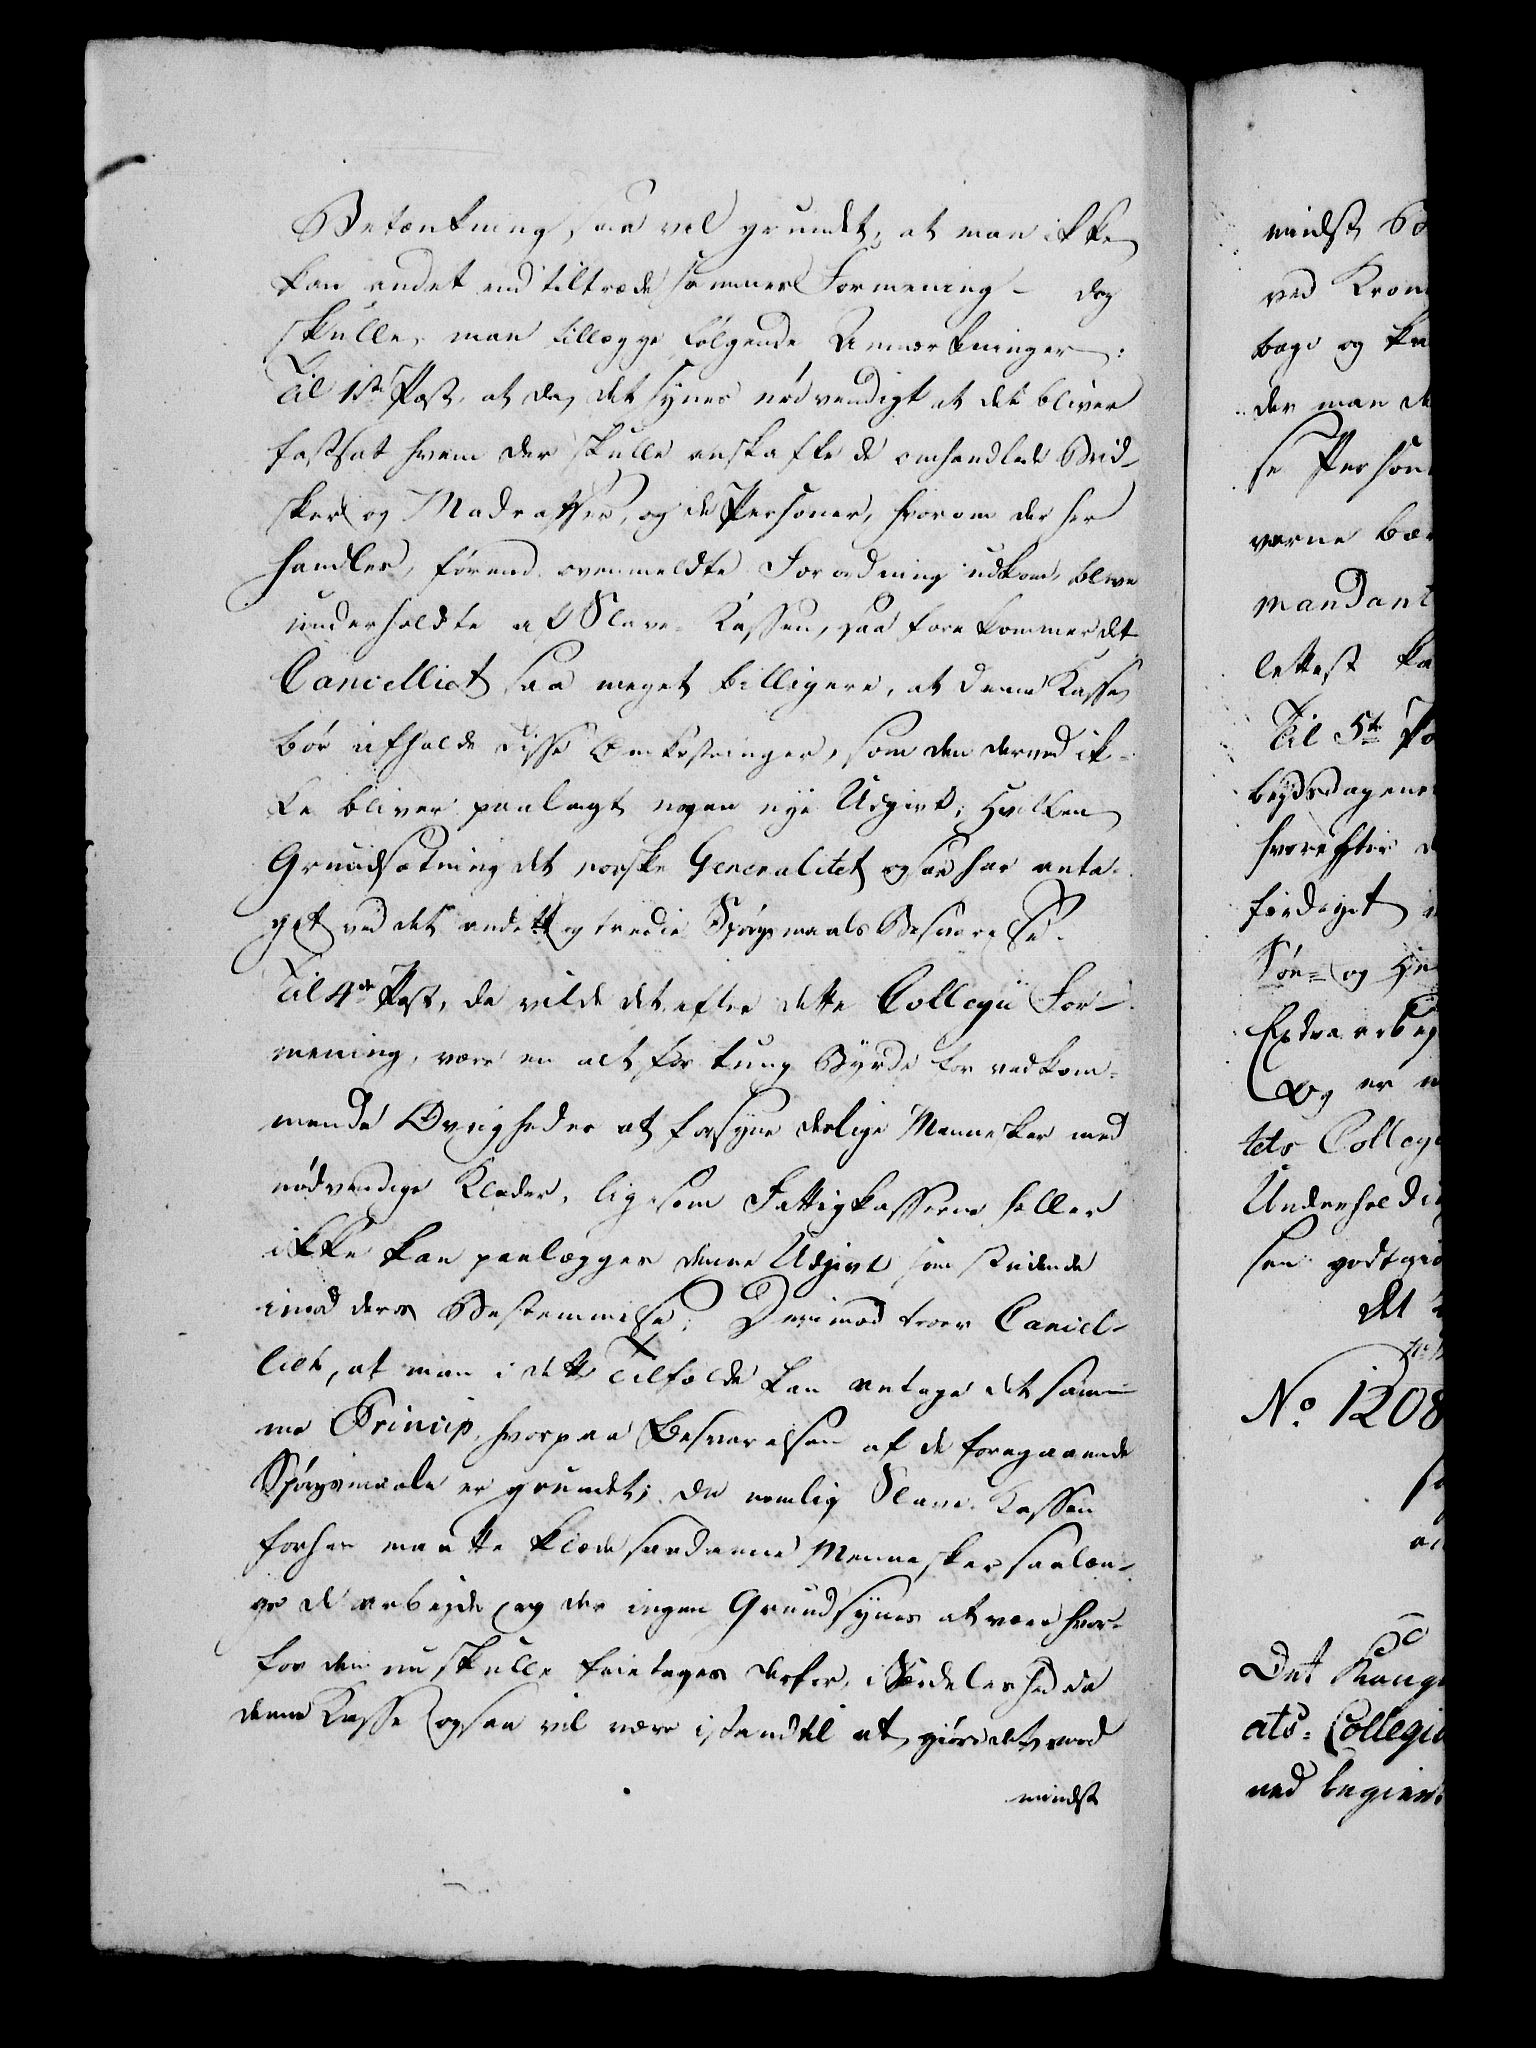 Betænkning, saa vel grundet, at man ikke
kan andet end tiltræde sammes Formening – dog
skulle man tillægge følgende Anmærkninger:
Til 1ste Post, at da det synes nødvendigt at det bliver
fastsat hvem der skulle anskaffe de omhandlede Brid-
sker og Madratzer, og de Personer, hvorom der her
handles, førend ovenmeldte Forordning udkom, bleve
underholdte af Slave-Kassen, saa forekommer det
Cancelliet saa meget billigere, at denne Kasse
bør afholde disse Omkostninger, som den derved ik-
ke bliver paalagt nogen nye Udgivt; hvilken
Grundsætning det norske Generalitet ogsaa har anta-
get ved det andet og tredie Spørgsmaals Besvarelse.
Til 4de Post, da vilde det efter dette Collegii For-
mening, være en alt for tung Byrde for vedkom-
mende Øvrigheder at forsyne deslige Mennesker med
nødvendige Klæder, ligesom Fattigkasserne heller
ikke kan paalægges denne Udgivt som stridende
imod deres Bestemmelse; Derimod troer Cancel-
liet, at man i dette Tilfælde kan antage det sam-
me Princip, hvorpaa Besvarelsen af de foregaaende
Spørgsmaale er grundet; da nemlig Slave-Kassen
forhen maatte klæde saadanne Mennesker saalæn-
ge de arbejde, og der ingen Grund synes at være hvor-
for den nu skulle fritages derfor, i Særdeleshed da
denne Kasse ogsaa vil være istand til at giøre det med
mindst
mindst B
ved Kron
bage og
der man de
se Person
verne
mandant
lettest ka
Til 5te Po
beydsdagene
hvorefter d
færdiget
Søn- og
Extra arbey
og er
tets Colleg
Underhold
sen godtgiø
det
No 1208
Det Kong
ats-Collegi
ved